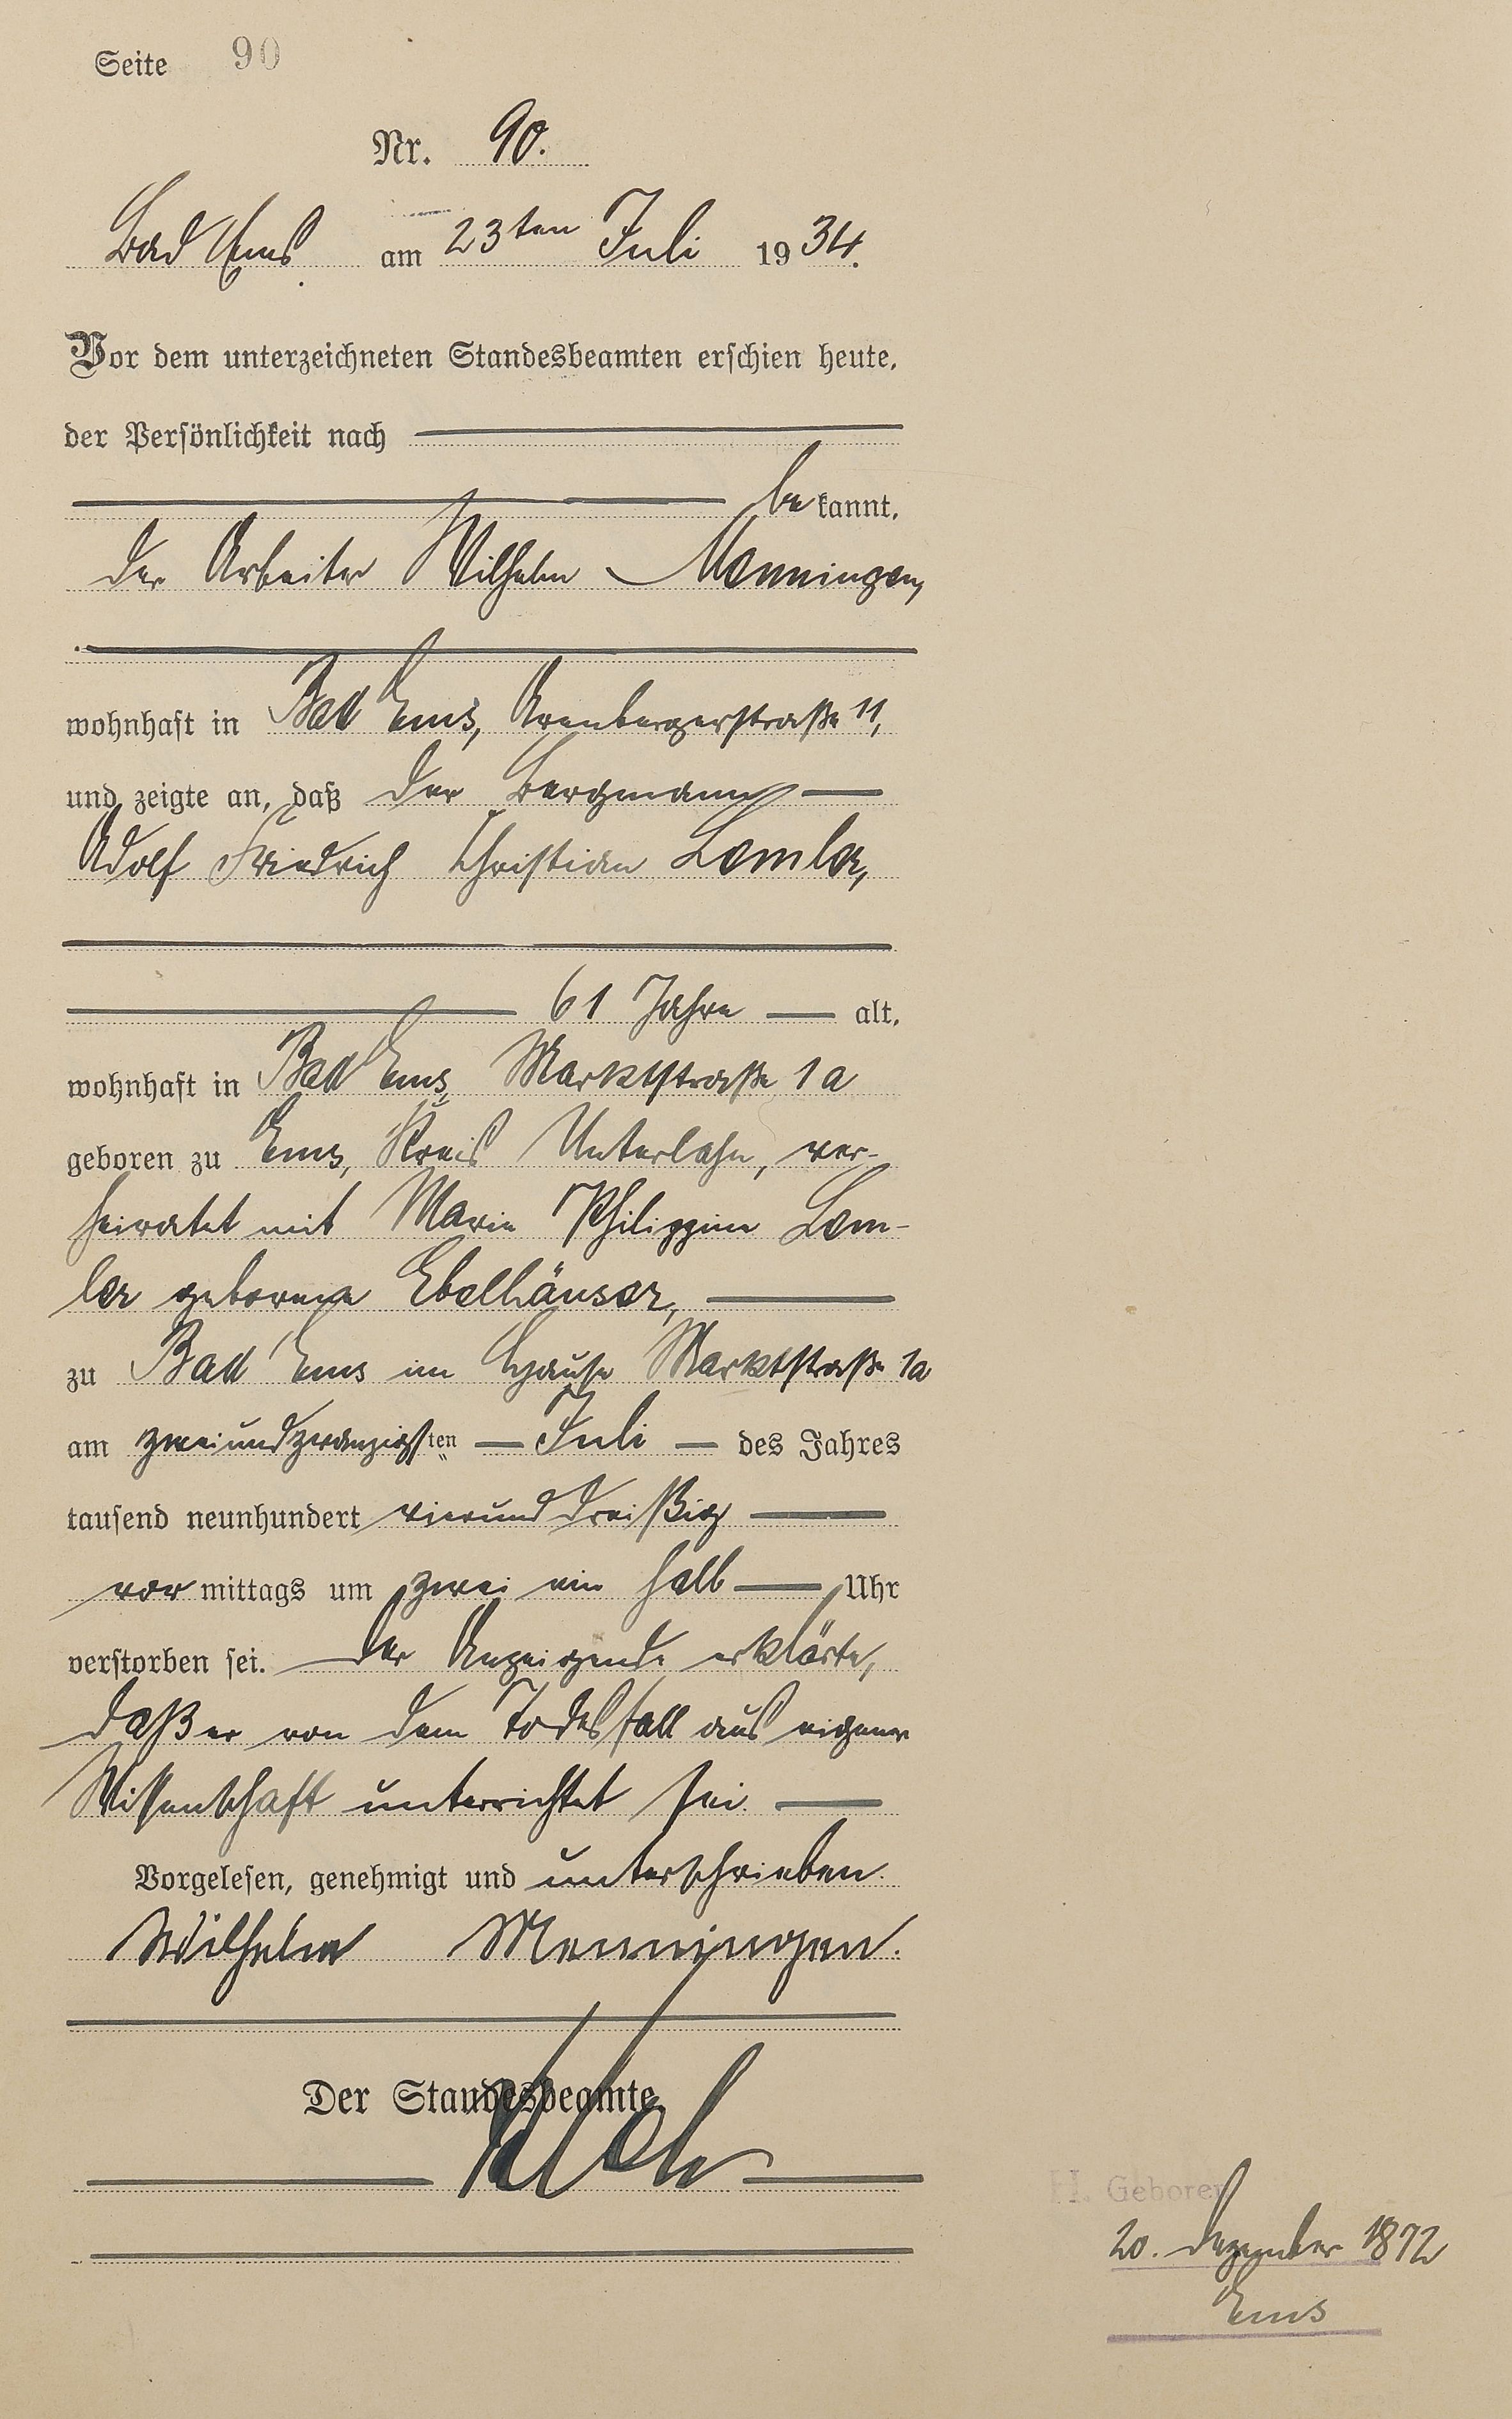 Seite 90
Nr. 90.
Bad Ems am 23ten Juli 1934.
Vor dem unterzeichneten Standesbeamten erschien heute,
der Persönlichkeit nach
be kannt,
der Arbeiter Wilhelm Menningen,
wohnhaft in Bad Ems, Arenbergerstraße 11,
und zeigte an, daß der Bergmann
Adolf Friedrich Christian Lemler,
61 Jahre alt,
wohnhaft in Bad Ems, Marktstraße 1a
geboren zu Ems, Kreis Unterlahn, ver-
heiratet mit Marie Philippine Lem-
ler geborene Ebelhäuser,
zu Bad Ems im Hause Marktstraße 1a
am zweiundzwanzigsten Juli des Jahres
tausend neunhundert vierunddreißig
vor mittags um zwei ein halb Uhr
verstorben sei. Der Anzeigende erklärte,
daß er von dem Todesfall aus eigener
Wissenschaft unterrichtet sei.
Vorgelesen, genehmigt und unterschrieben.
Wilhelm Menningen.
Der Standesbeamte
H. Geboren
20. Dezember 1872
Ems